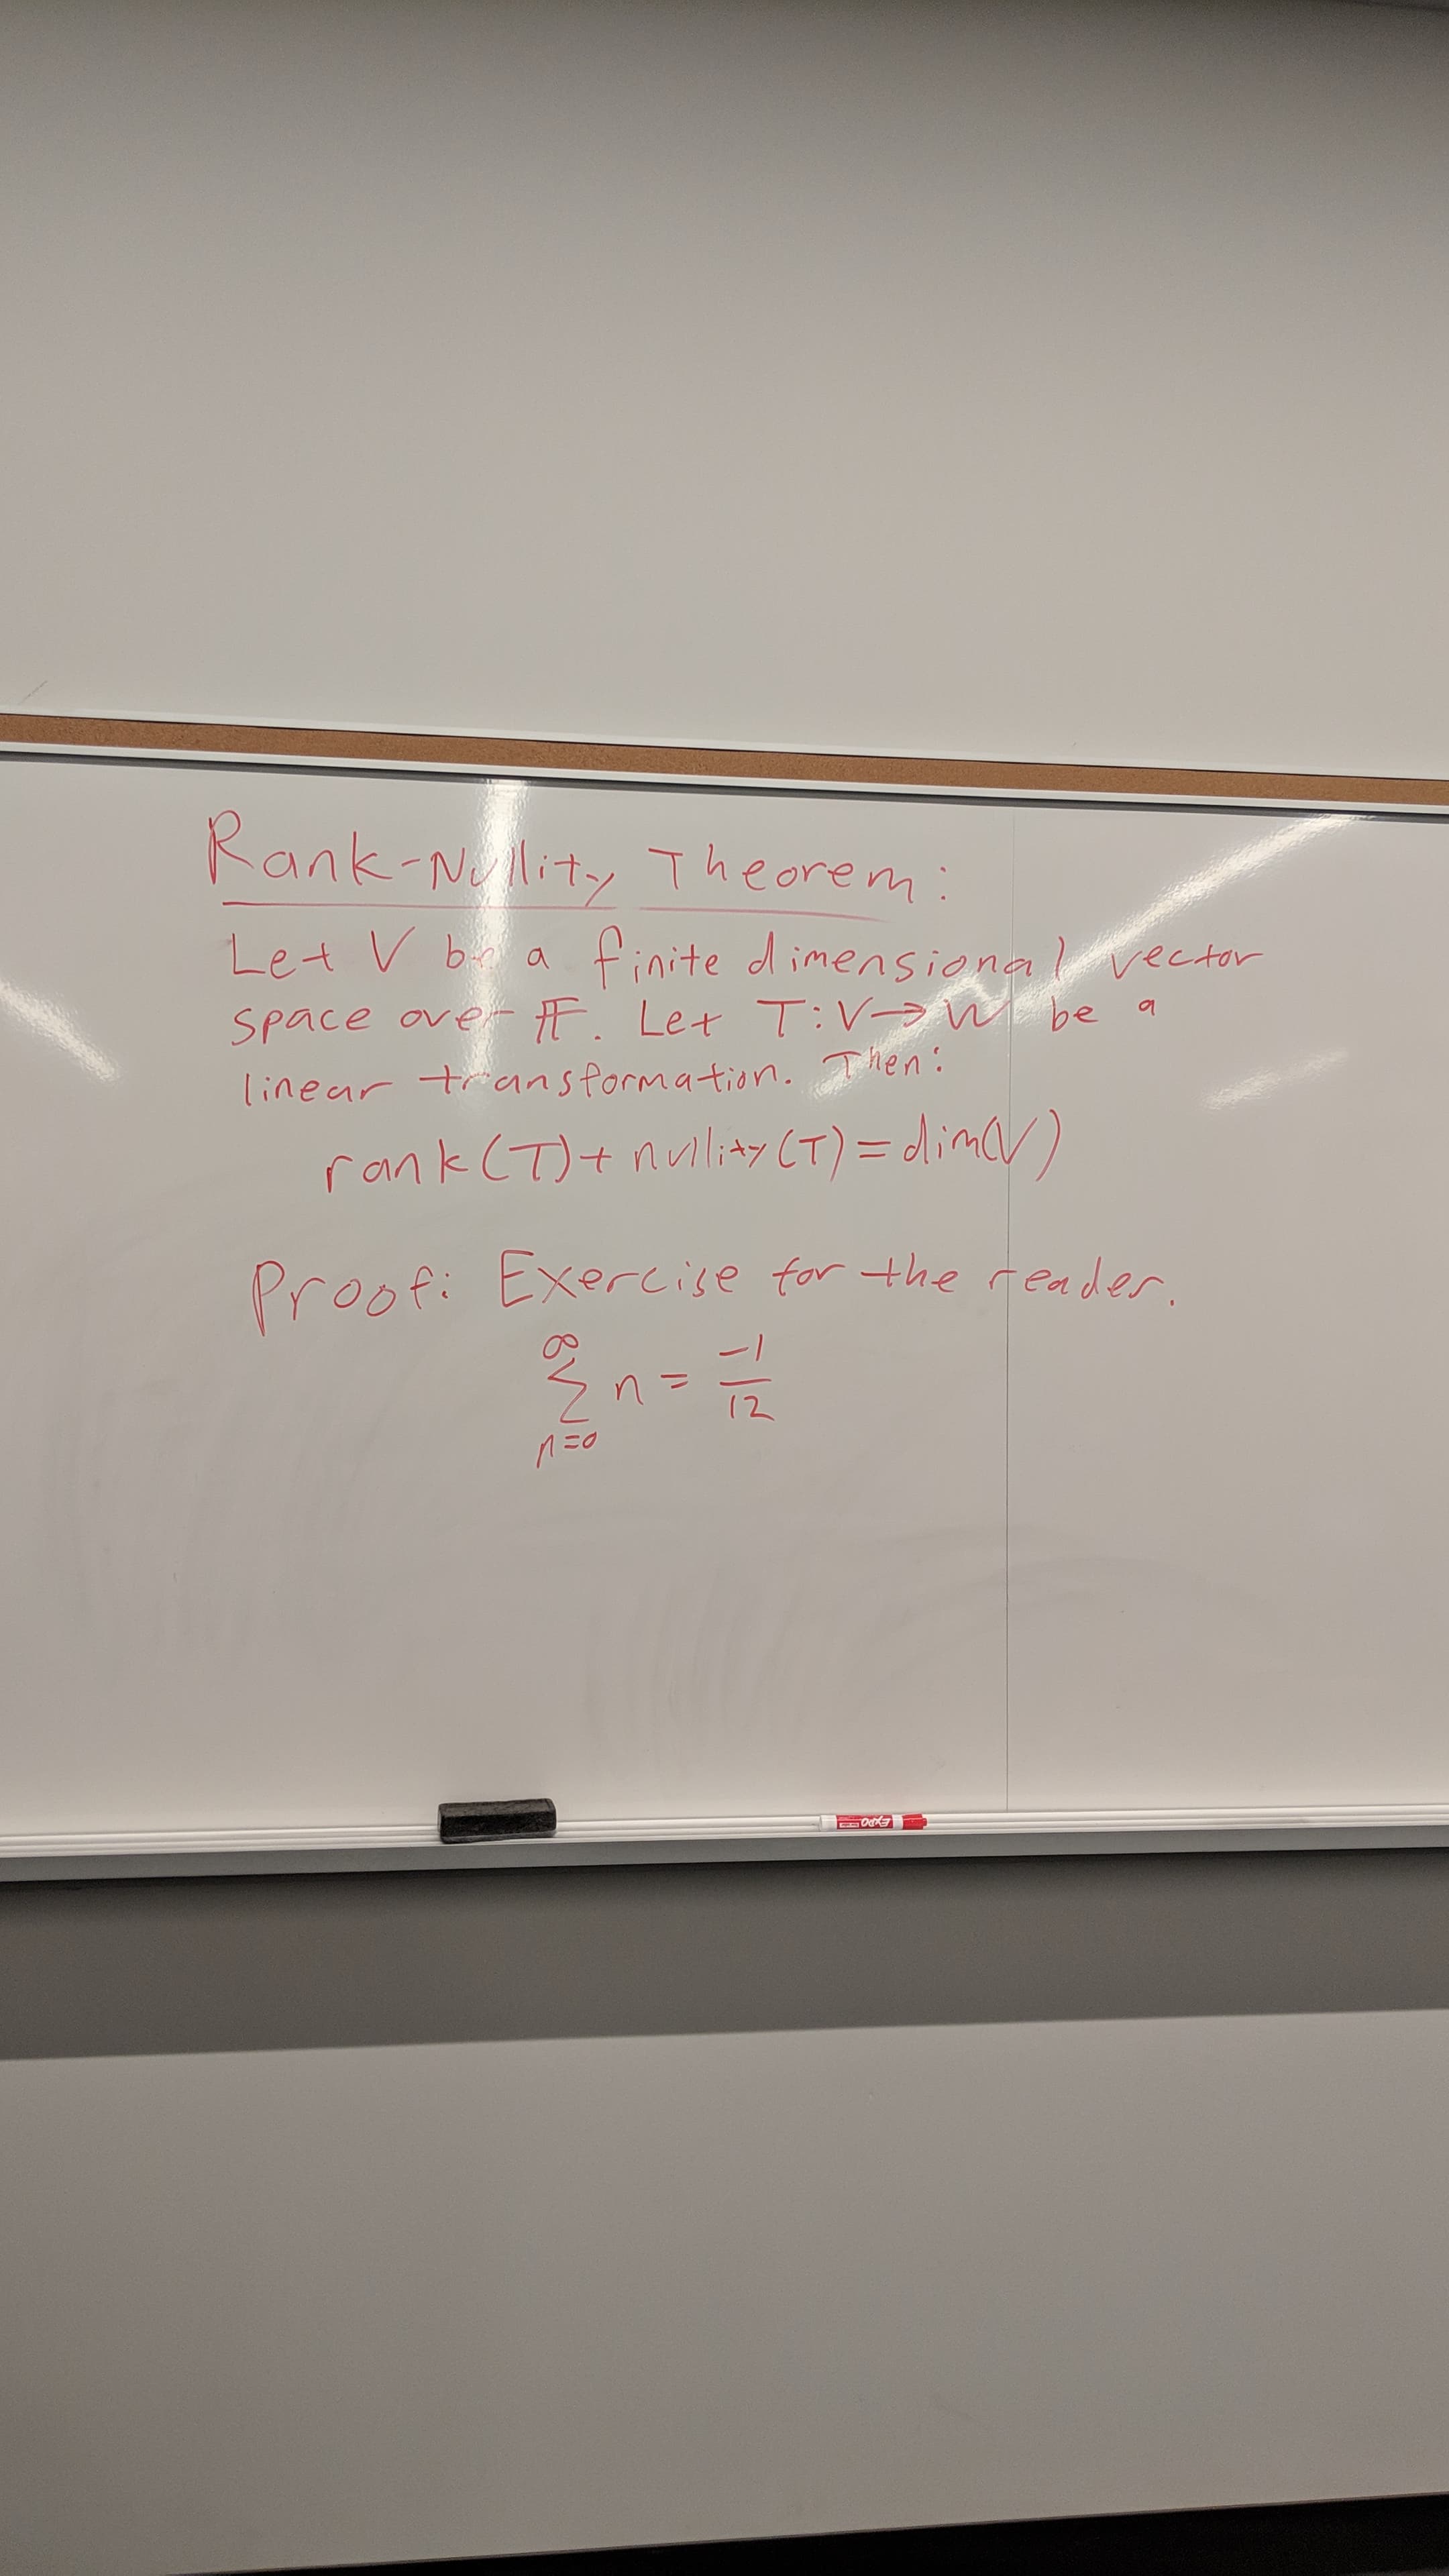 Rank-Nullity Theorem:
Let V be a finite dimensional vector
space over 𝔽. Let T:V→W be a
linear transformation. Then:
rank(T)+nullity(T)=dim(V)
Proof: Exercise for the reader.
∞
∑ n = -1/12
n=0
EXPO